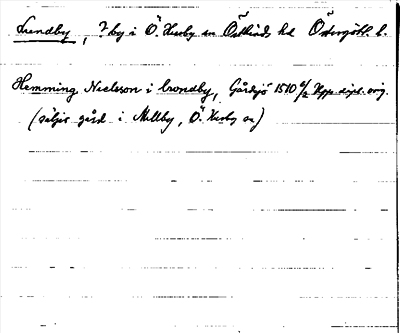 Lundby, ? by i Ö. Husby sn Östkinds hd Östergötl. l.
Hemming Nielsson i Lrondby, Gårdsjö 1510 6/2 Upps. dipl. orig.
(säljer gård i Mellby, Ö. Husby sn)